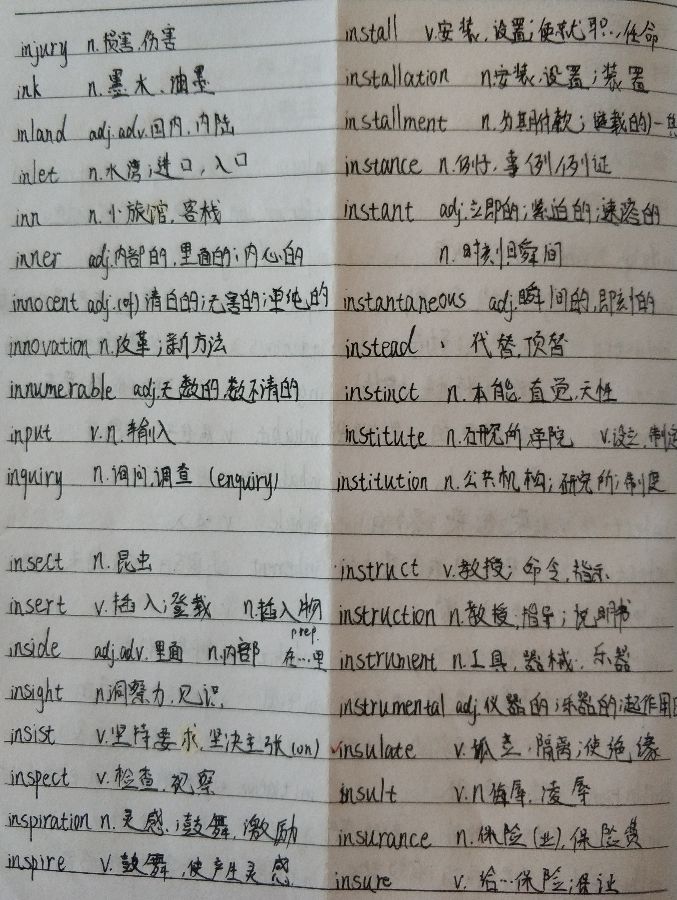 injury n.损害,伤害
ink n.墨水,油墨
inland adj.adv.国内,内陆
inlet n.水湾;进口,入口
inn n.小旅馆,客栈
inner adj.内部的,里面的;内心的
innocent adj.(of)清白的;无害的;单纯的
innovation n.改革;新方法
innumerable adj.无数的,数不清的
input v.n.输入
inquiry n.询问,调查 (enquiry)
insect n.昆虫
insert v.插入;登载 n.插入物
inside adj.adv.里面 n.内部 prep.在…里
insight n.洞察力,见识
insist v.坚持要求,坚决主张(on)
inspect v.检查,视察
inspiration n.灵感;鼓舞,激励
inspire v.鼓舞,使产生灵感
install v.安装,设置;使就职,任命
installation n.安装,设置;装置
installment n.分期付款;连载的一
instance n.例子,事例,例证
instant adj.立即的;紧迫的;速溶的
n.时刻,瞬间
instantaneous adj.瞬间的,即刻的
instead 、代替,顶替
instinct n.本能,直觉,天性
institute n.研究所,学院 v.设立,制定
institution n.公共机构;研究所;制度
instruct v.教授;命令,指示
instruction n.教授,指导;说明书
instrument n.工具,器械,乐器
instrumental adj.仪器的;乐器的;起作用
insulate v.孤立,隔离;使绝缘
insult v.n.侮辱,凌辱
insurance n.保险(业),保险费
insure v.给…保险;保证